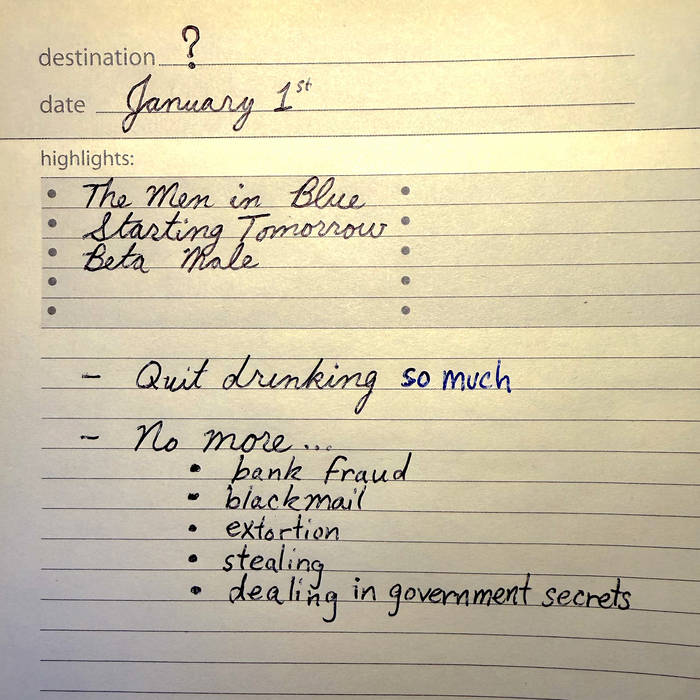 destination ?
date January 1st
highlights:
• The Men in Blue •
• Starting Tomorrow •
• Beta Male •
• •
• •
- Quit drinking so much
- No more...
• bank fraud
• blackmail
• extortion
• stealing
• dealing in government secrets